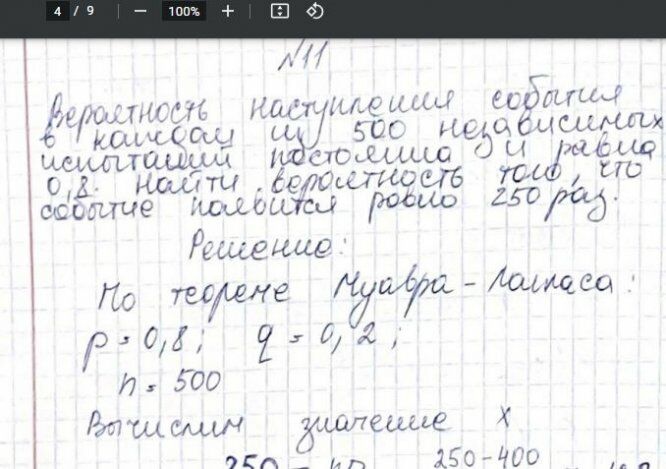 4 / 9 — 100% +
№11
Вероятность наступления события
в каждом из 500 независимых
испытаний постоянна и равна
0,8. Найти вероятность того, что
событие появится ровно 250 раз.
Решение:
По теореме Муавра-Лапласа:
p = 0,8; q = 0,2;
n = 500
Вычислим значение x
250 - np 250-400